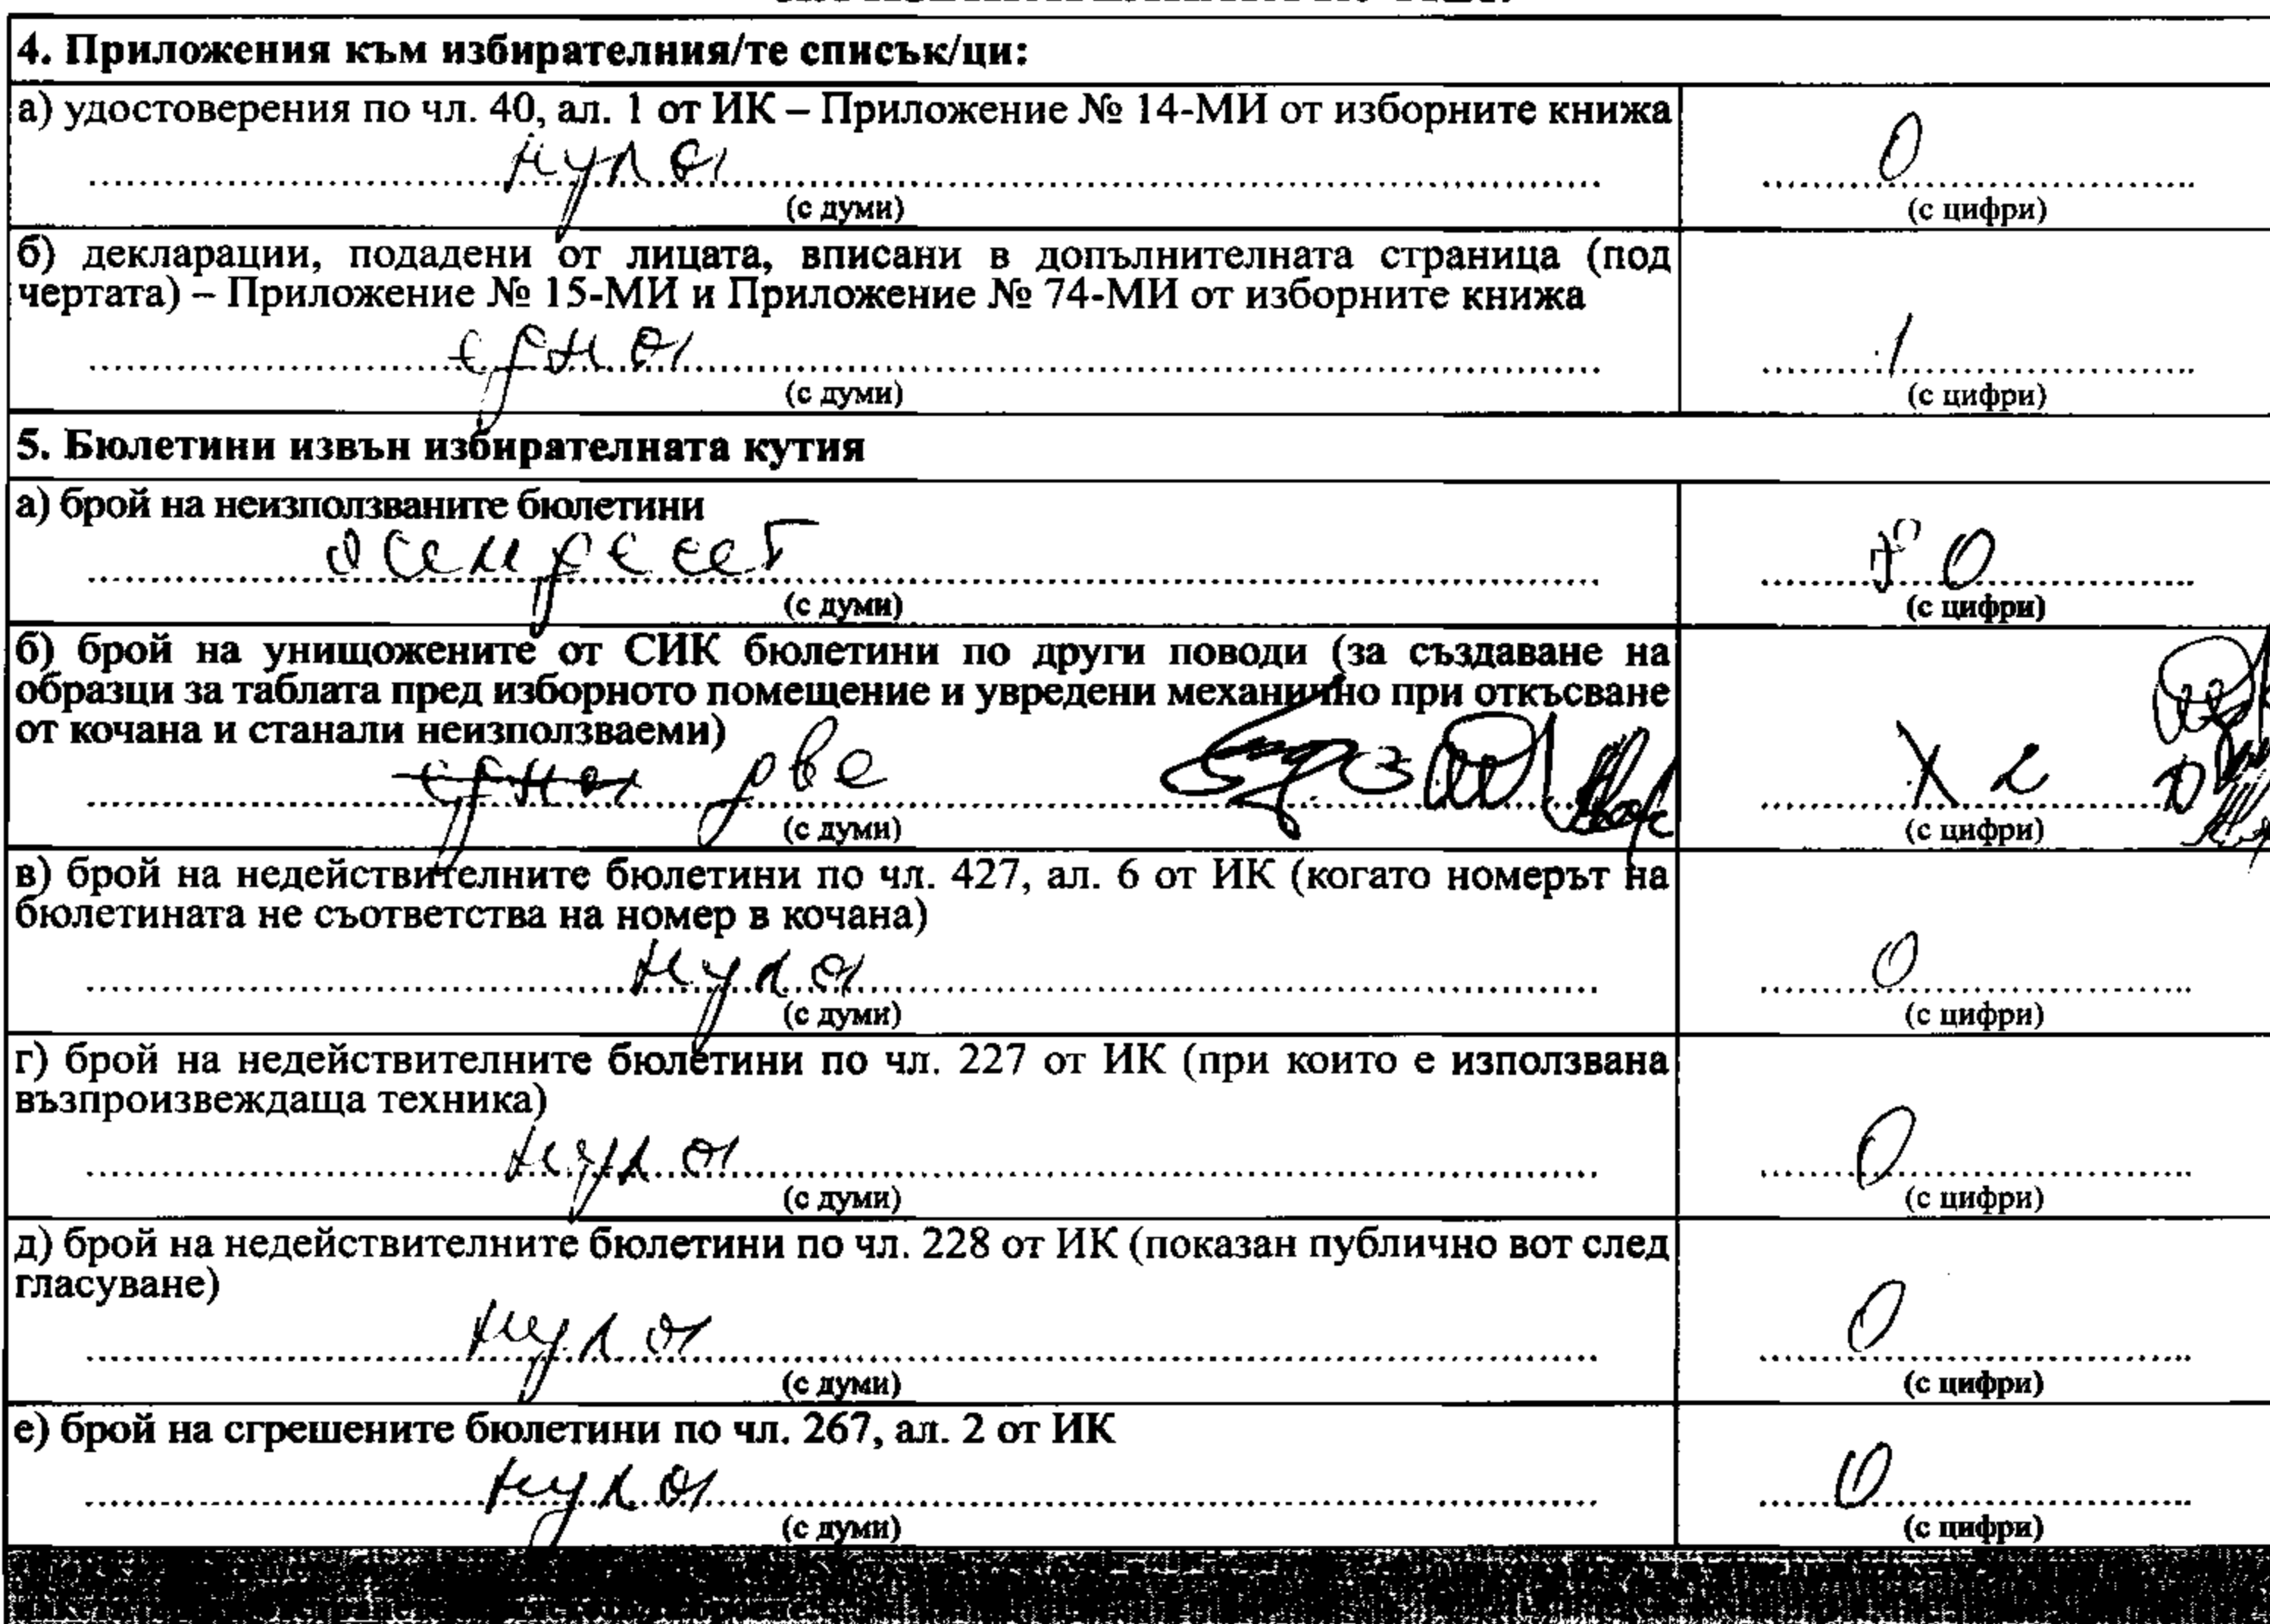 4. Приложения към избирателния/те списък/ци:
а) удостоверения по чл. 40, ал. 1 от ИК – Приложение № 14-МИ от изборните книжа
нула 0
(с думи) (с цифри)
б) декларации, подадени от лицата, вписани в допълнителната страница (под
чертата) – Приложение № 15-МИ и Приложение № 74-МИ от изборните книжа
една 1
(с думи) (с цифри)
5. Бюлетини извън избирателната кутия
а) брой на неизползваните бюлетини
осемдесет 80
(с думи) (с цифри)
б) брой на унищожените от СИК бюлетини по други поводи (за създаване на
образци за таблата пред изборното помещение и увредени механично при откъсване
от кочана и станали неизползваеми)
една две 2
(с думи) (с цифри)
в) брой на недействителните бюлетини по чл. 427, ал. 6 от ИК (когато номерът на
бюлетината не съответства на номер в кочана)
нула 0
(с думи) (с цифри)
г) брой на недействителните бюлетини по чл. 227 от ИК (при които е използвана
възпроизвеждаща техника)
нула 0
(с думи) (с цифри)
д) брой на недействителните бюлетини по чл. 228 от ИК (показан публично вот след
гласуване)
нула 0
(с думи) (с цифри)
е) брой на сгрешените бюлетини по чл. 267, ал. 2 от ИК
нула 0
(с думи) (с цифри)